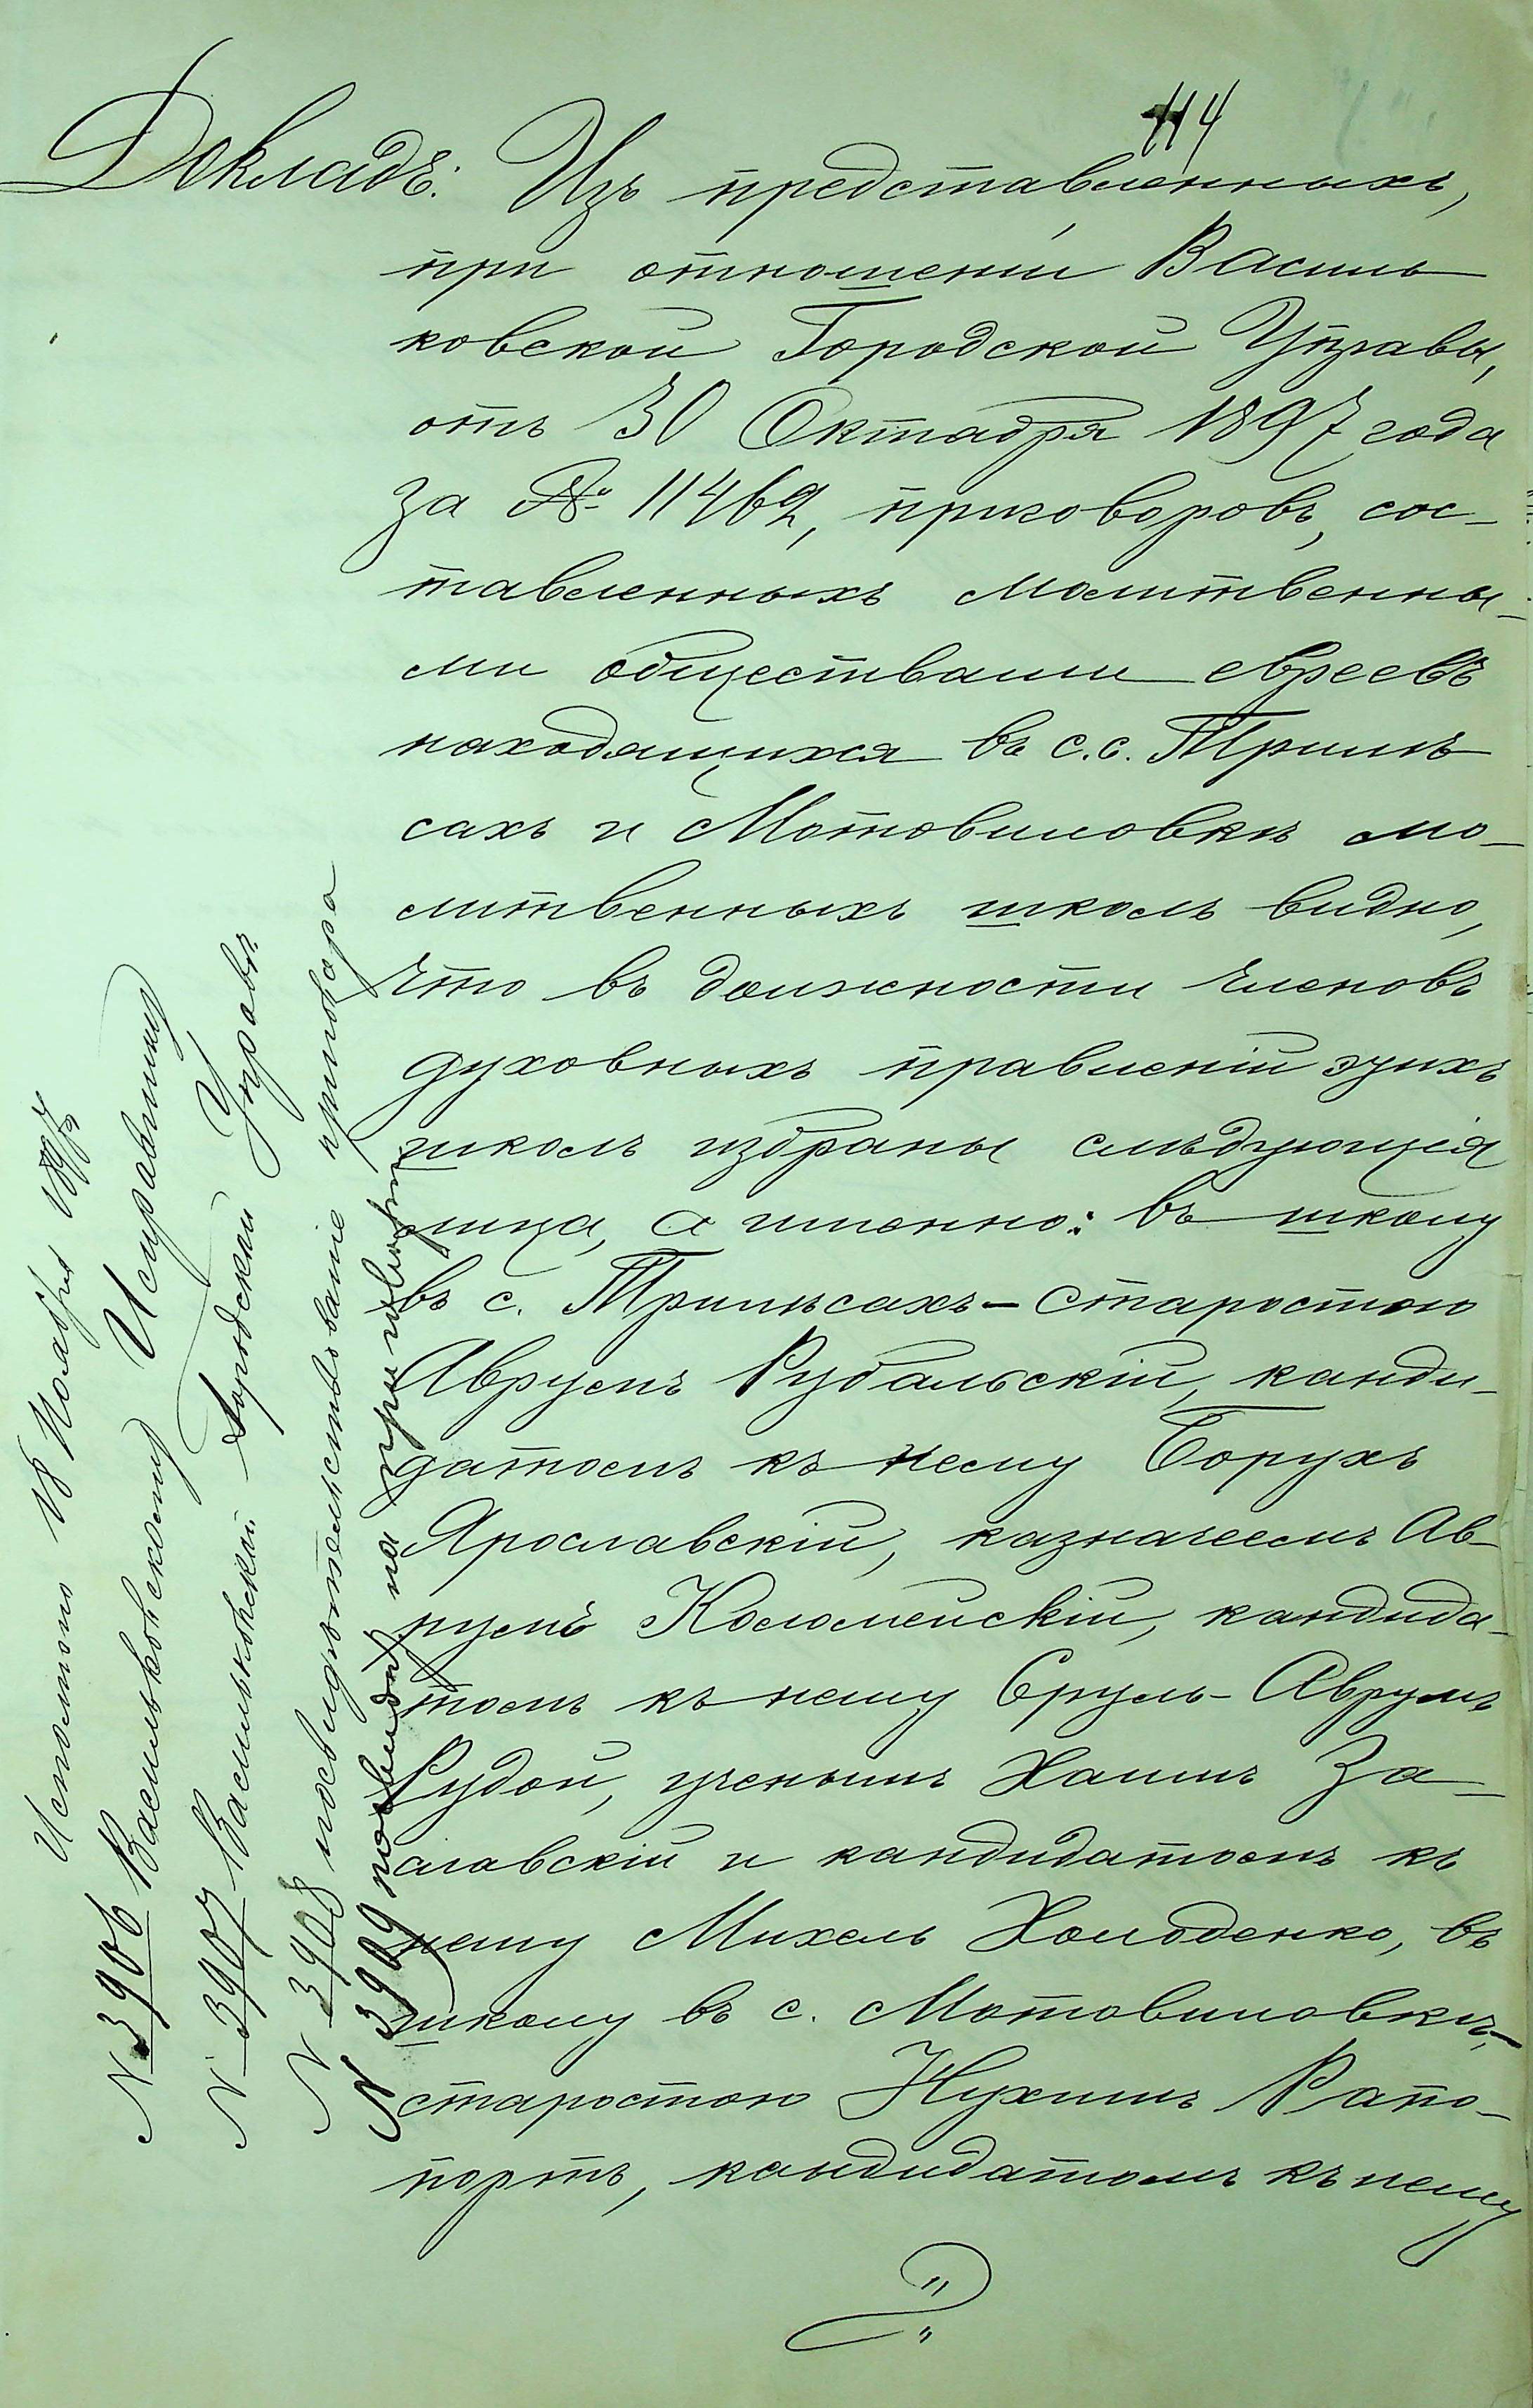 114
Докладъ: Изъ представленныхъ,
при отношеніи Василь
ковской Городской Управы,
отъ 30 Октября 1897 года
за № 11462, приговоровъ, сос-
тавленныхъ молитвенны-
ми обществами евреевъ
находящихся въ с.с. Трилѣ
сахъ и Мотовиловкѣ мо-
литвенныхъ школъ видно,
что въ должности членовъ
духовныхъ правленій этихъ
школъ избраны слѣдующія
лица, а именно: въ школу
въ с. Трилѣсахъ - старостою
Аврумъ Рубальскій, канди-
датомъ къ нему Борухъ
Ярославскій, казначеемъ Ав-
румъ Коломейскій, кандида-
томъ къ нему Сруль-Аврумъ
Рудой, ученымъ Хаимъ За-
славскій и кандидатомъ къ
нему Михель Холоденко, въ
школу въ с. Мотовиловкѣ,-
старостою Нухимъ Рапо-
портъ, кандидатомъ къ нему
Исполнено 18 Ноября 1897
N 3906 Васильковскому Исправнику
N 3907 Васильковской Городской Управѣ
N 3908 посвидѣтельствованіе приговора
N 3909 на приговорѣ